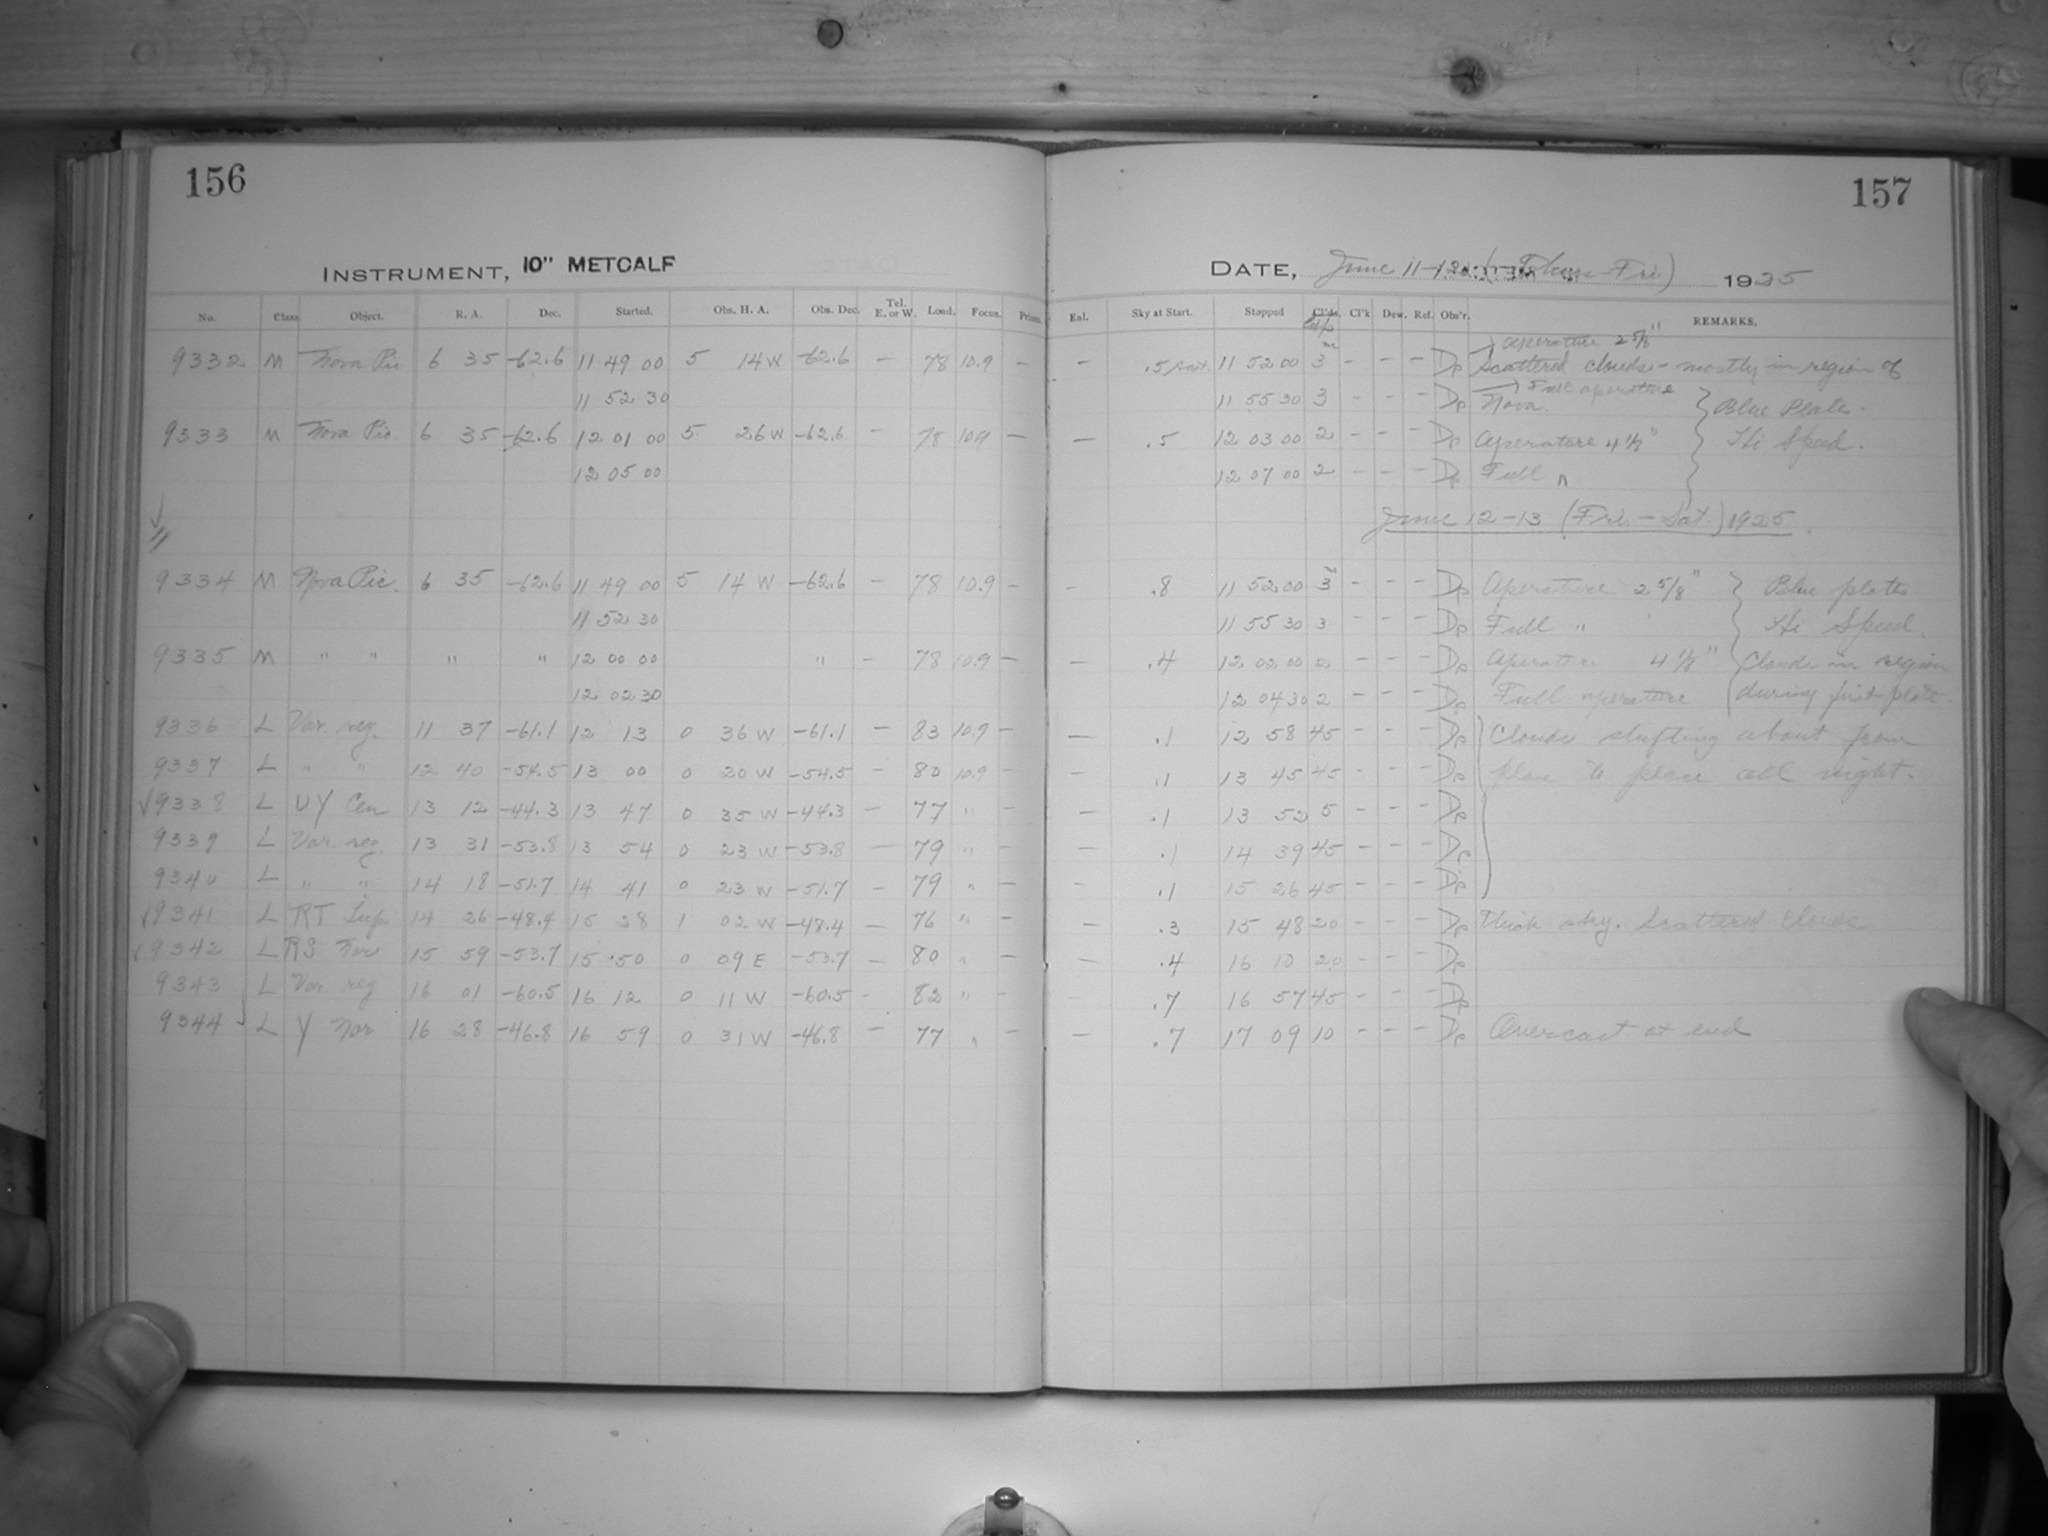 156
157
INSTRUMENT, 10" METCALF
DATE, June 11-12 (Thurs-Fri) 1925
No. Class Object. R. A. Dec. Started. Obs. H. A. Obs. Dec. Tel. E. or W. Load. Focus. Prism.
Eal. Sky at Start. Stopped Cl'ds. Cl'k Dew. Ref. Obs'r. REMARKS.
Exp
aperature 2 5/8"
9332 M Nova Pic 6 35 -62.6 11 49 00 5 14 W -62.6 — 78 10.9 — — .5 11 52 00 3m - - - Dp Scattered clouds - mostly in region of
11 52 30 11 55 30 3 - - - Dp Nova. Full aperature } Blue Plate.
9333 M Nova Pic. 6 35 -62.6 12 01 00 5 26 W -62.6 — 78 10.9 — — .5 12 03 00 2 - - - Dp Aperature 4 1/8" Hi Speed.
12 05 00 12 07 00 2 - - - Dp Full "
June 12-13 (Fri. - Sat.) 1925.
9334 M Nova Pic. 6 35 -62.6 11 49 00 5 14 W -62.6 — 78 10.9 — — .8 11 52 00 3m - - - Dp Aperature 2 5/8" } Blue plate
11 52 30 11 55 30 3 - - - Dp Full " Hi Speed.
9335 M " " " " 12 00 00 " — 78 10.9 — — .4 12 02 00 2 - - - Dp Aperature 4 1/8" Clouds in region
12 02 30 12 04 30 2 - - - Dp Full aperature during first plate.
9336 L Var. reg. 11 37 -61.1 12 13 0 36 W -61.1 — 83 10.9 — — .1 12 58 45 - - - Dp Clouds shifting about from
9337 L " " 12 40 -54.5 13 00 0 20 W -54.5 — 80 10.9 — — .1 13 45 45 - - - Dp place to place all night.
√9338 L UY Cen 13 12 -44.3 13 47 0 35 W -44.3 — 77 " — — .1 13 52 5 - - - Dp
9339 L Var. reg. 13 31 -53.8 13 54 0 23 W -53.8 — 79 " — — .1 14 39 45 - - - Dp
9340 L " " 14 18 -51.7 14 41 0 23 W -51.7 — 79 " — — .1 15 26 45 - - - Dp
√9341 L RT Lup 14 26 -48.4 15 28 1 02 W -48.4 — 76 " — — .3 15 48 20 - - - Dp Thick sky. Scattered clouds
√9342 L RS Nor 15 59 -53.7 15 50 0 09 E -53.7 — 80 " — — .4 16 10 20 - - - Dp
9343 L Var reg 16 01 -60.5 16 12 0 11 W -60.5 - 82 " — - .7 16 57 45 - - - Dp
9344 √ L Y Nor 16 28 -46.8 16 59 0 31 W -46.8 — 77 " — — .7 17 09 10 - - - Dp Overcast at end